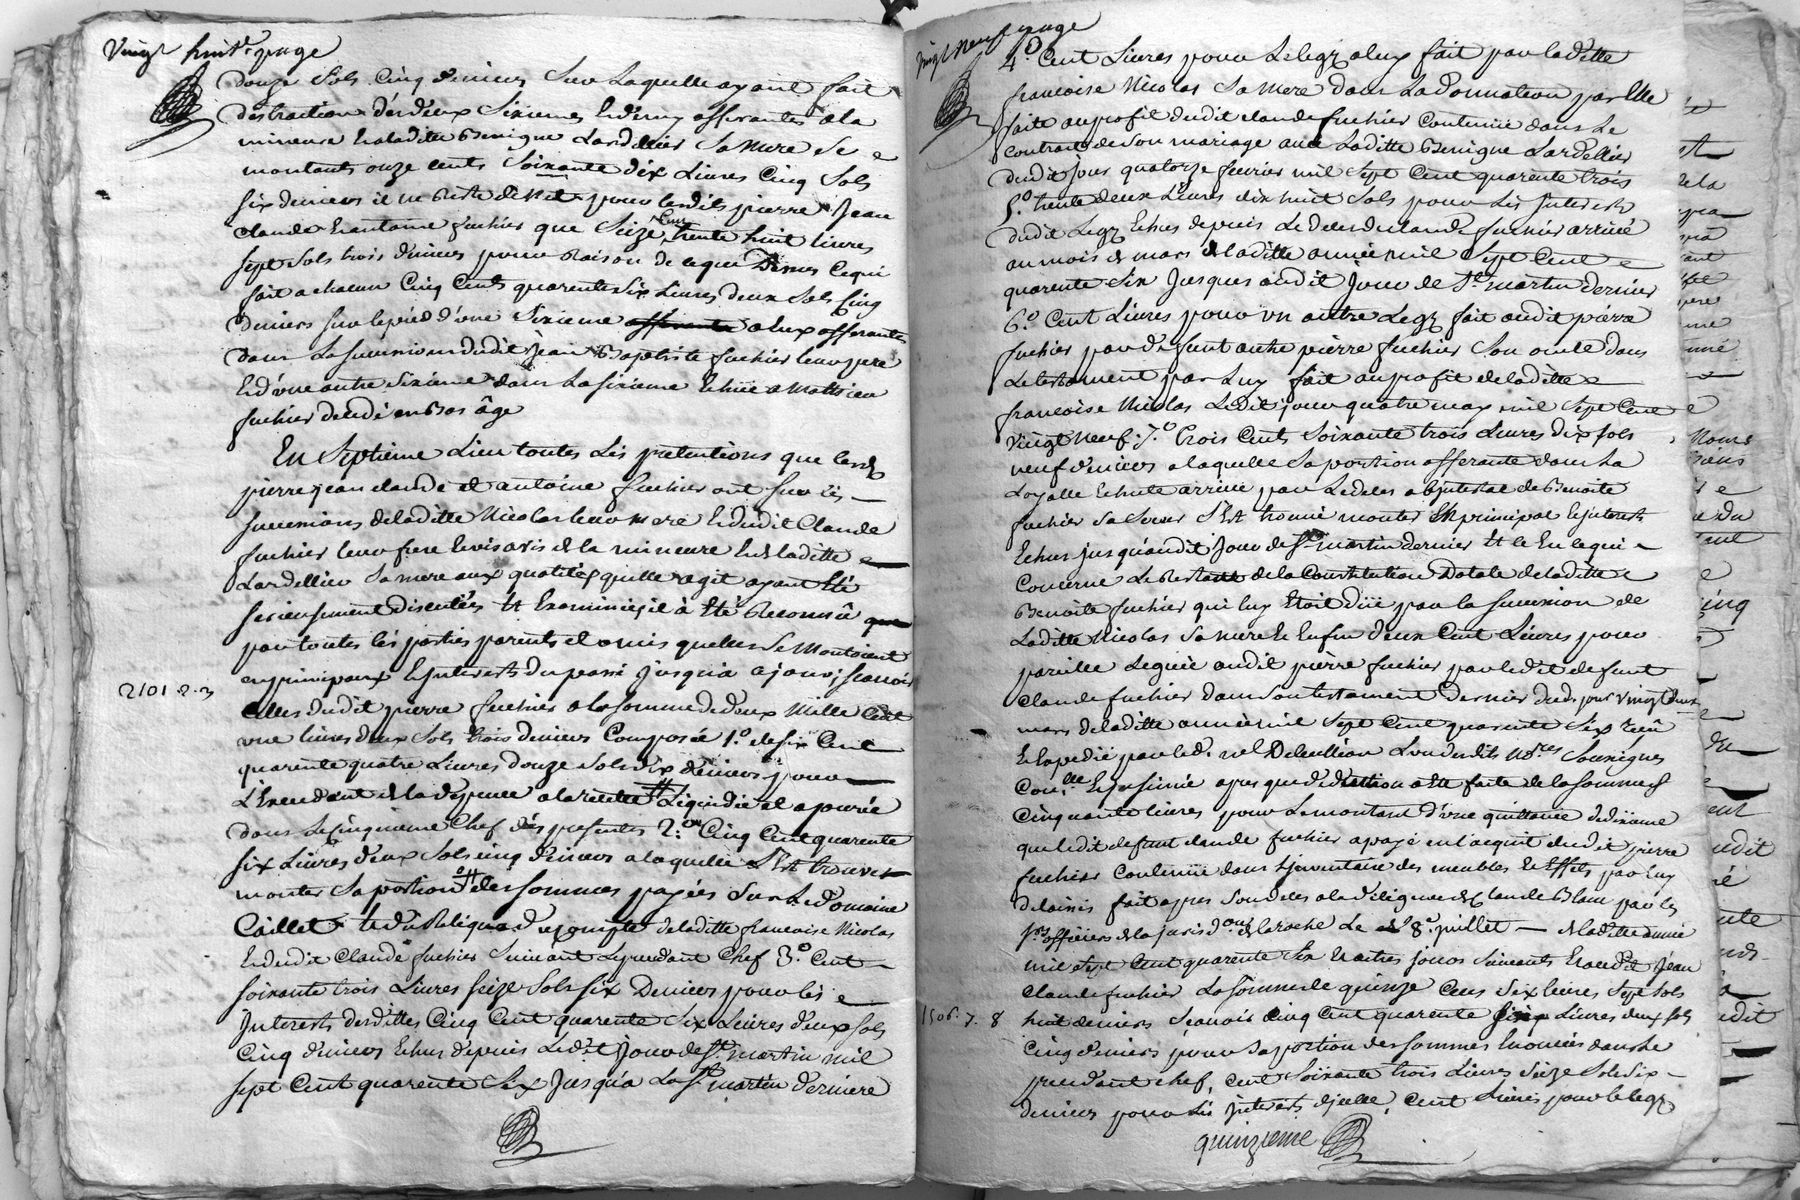 Vingt huit.e page
douze sols cinq deniers sur laquelle ayant fait
distraction des deux sixiemes et demy afferantes a la
mineure et a laditte Benigne Lardellier sa mere se
montants onze cents soixante dix livres cinq sols
six deniers il ne reste de net pour lesdits pierre Jean
claude et antoine fuchier que seize cent trente huit livres
sept sols trois deniers pour raison de lequel ce qui
fait a chacun cinq cents quarente six livres deux sols cinq
deniers sur le pied d'une sixieme a eux afferante
dans la succession dudit Jean Baptiste fuchier leur pere
et d'une autre sixieme dans la sixieme echüe a Mathieu
fuchier decedé en bas âge
En septieme lieu toutes les pretentions que lesd.
pierre jean claude et antoine fuchier ont sur les
successions de laditte Nicolas leur mere et dudit Claude
fuchier leur frere et vis a vis de la mineure et de laditte
Lardellier sa mere aux qualités qu'elle agit ayant été
serieusement discutées et examinées il à été reconnû
par toutes les parties parents et amis qu'elles se montoient
en principaux et interests du passé jusqu'a ce jour, scavoir
2101.2.3
celles dudit pierre fuchier a la somme de deux mille cent
une livres deux sols trois deniers composée 1.º de six cent
quarente quatre livres douze sols dix deniers pour
l'excendant de la depense a la recette liquidée et apurée
dans le cinquieme chef des presentes 2.º cinq cent quarente
six livres deux sols cinq deniers a laquelle s'est trouvée
monter sa portion des sommes payées sur le domaine
Caillet de laditte francoise Nicolas
et dudit Claude fuchier suivant le precedent chef 3.º cent
soixante trois livres seize sols six deniers pour les
interests desdittes cinq cent quarente six livres deux sols
cinq deniers echus depuis led.t jour de s.t martin mil
sept cent quarente six jusqu'a la s.t martin derniere
vingt neuf page
4.º cent livres pour le legz a luy fait par laditte
francoise Nicolas sa mere dans la donnation par elle
faite au profit dudit claude fuchier contenüe dans le
contract de son mariage avec laditte Benigne Lardellier
dudit jour quatorze fevrier mil sept cent quarente trois
5.º trente deux livres dix huit sols pour les interests
dudit legz echus depuis le deces du claude fuchier arrivé
au mois de mars de laditte année mil sept cent
quarente six jusques audit jour de s.t martin dernier
6.º cent livres pour un autre legz fait audit pierre
fuchier par defunt autre pierre fuchier son oncle dans
le testament par luy fait au profit de laditte
francoise Nicolas ledit jour quatre may mil sept cent
vingt neuf. 7.º trois cents soixante trois livres dix sols
neuf deniers a laquelle sa portion afferante dans la
echute arrivée par le deces abjntestat de Benoite
fuchier sa soeur s'est trouvée monter en principal et interests
echus jusqu'audit jour de s.t martin dernier et ce en ce qui
concerne le restant de la constitution dotale de laditte
Benoite fuchier qui luy etoit düe par la succession de
laditte Nicolas sa mere et enfin deux cent livres pour
pareille leguée audit pierre fuchier par ledit defunt
claude fuchier dans son testament dernier dud. jour vingt deux
mars de laditte année mil sept cent quarente six reçû
et expedié par led. l'un desdits No.res soussignés
apres que deduction a été faite de la somme de
cinquante livres pour le montant d'une quittance
que ledit defunt claude fuchier a payé en l'acquit dudit pierre
fuchier contenüe dans l'jnventaire des meubles et effets par luy
delaissés fait apres son deces a la diligence de claude Blanc par les
s.rs officiers de la jurisd.on de laroche le 8.e juillet de laditte année
mil sept cent quarente six et autres jours suivants et audit Jean
claude fuchier la somme de quinze cens six livres sept sols
1506.7.8
huit deniers sçavoir cinq cent quarente six livres deux sols
cinq deniers pour sa portion des sommes enoncées dans le
precedant chef, cent soixante trois livres seize sols six
deniers pour les interests d'jcelle, cent livres pour le legz
quinzieme